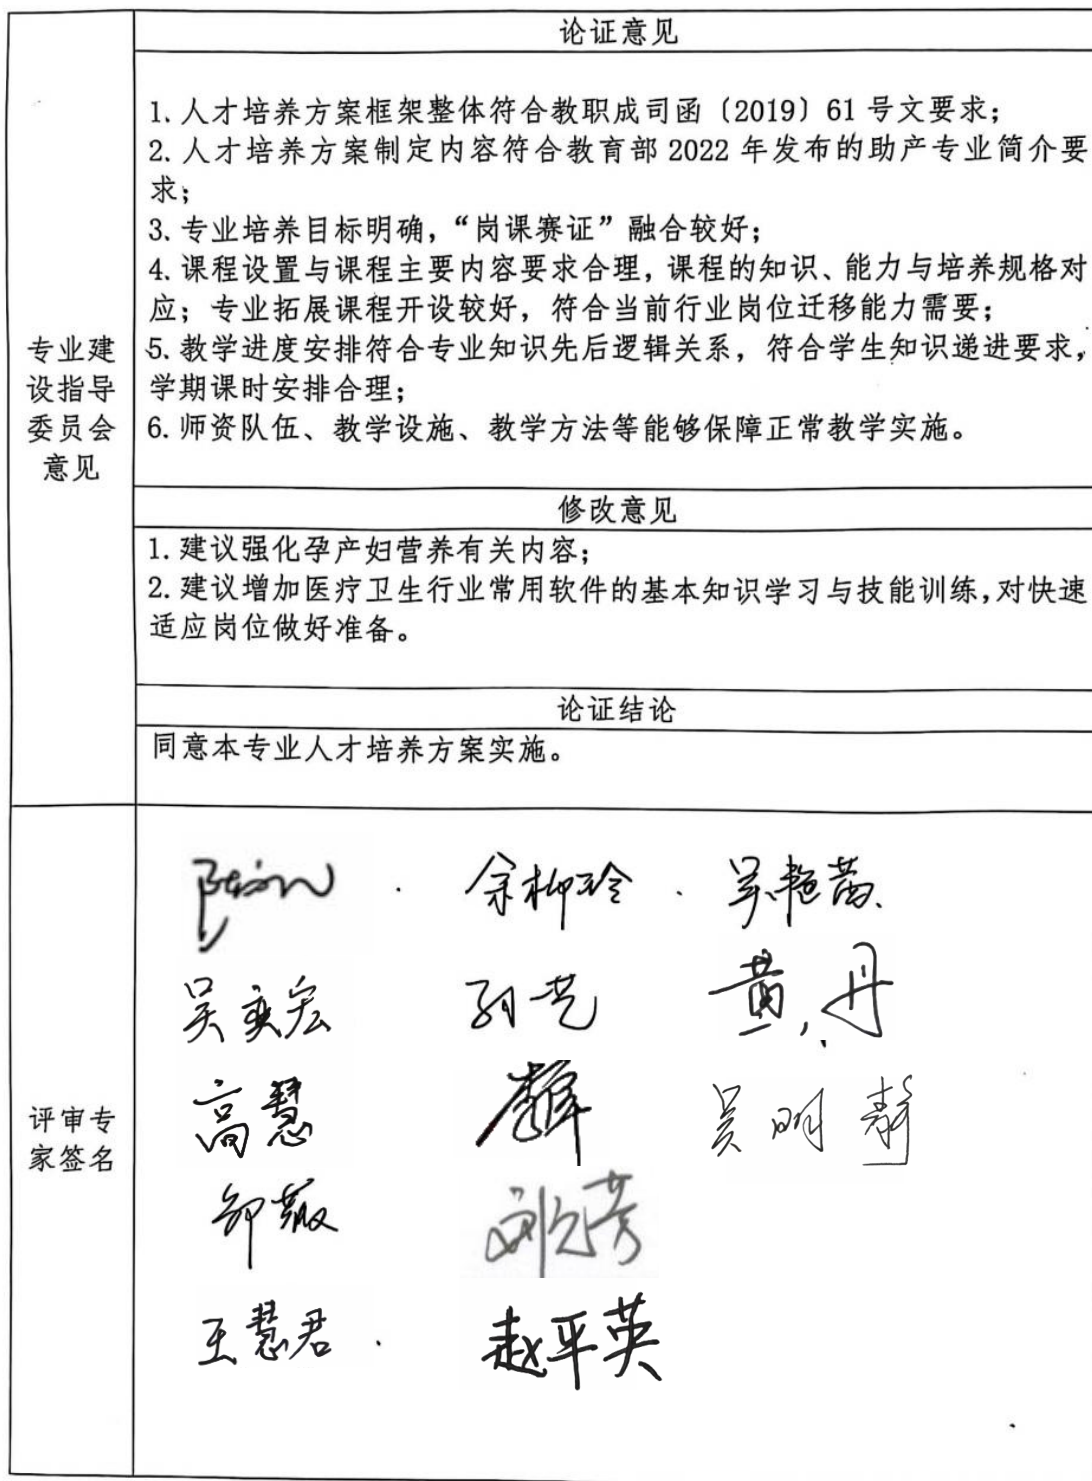 论证意见
1. 人才培养方案框架整体符合教职成司函〔2019〕61 号文要求；
2. 人才培养方案制定内容符合教育部 2022 年发布的助产专业简介要
求；
3. 专业培养目标明确，“岗课赛证”融合较好；
4. 课程设置与课程主要内容要求合理，课程的知识、能力与培养规格对
应；专业拓展课程开设较好，符合当前行业岗位迁移能力需要；
5. 教学进度安排符合专业知识先后逻辑关系，符合学生知识递进要求，
学期课时安排合理；
6. 师资队伍、教学设施、教学方法等能够保障正常教学实施。
专业建
设指导
委员会
意见
修改意见
1. 建议强化孕产妇营养有关内容；
2. 建议增加医疗卫生行业常用软件的基本知识学习与技能训练，对快速
适应岗位做好准备。
论证结论
同意本专业人才培养方案实施。
评审专
家签名
余柳玲 吴艳茜
吴奕宏 孙艺 黄丹
高慧 吴明静
邹敏
王慧君 赵平英